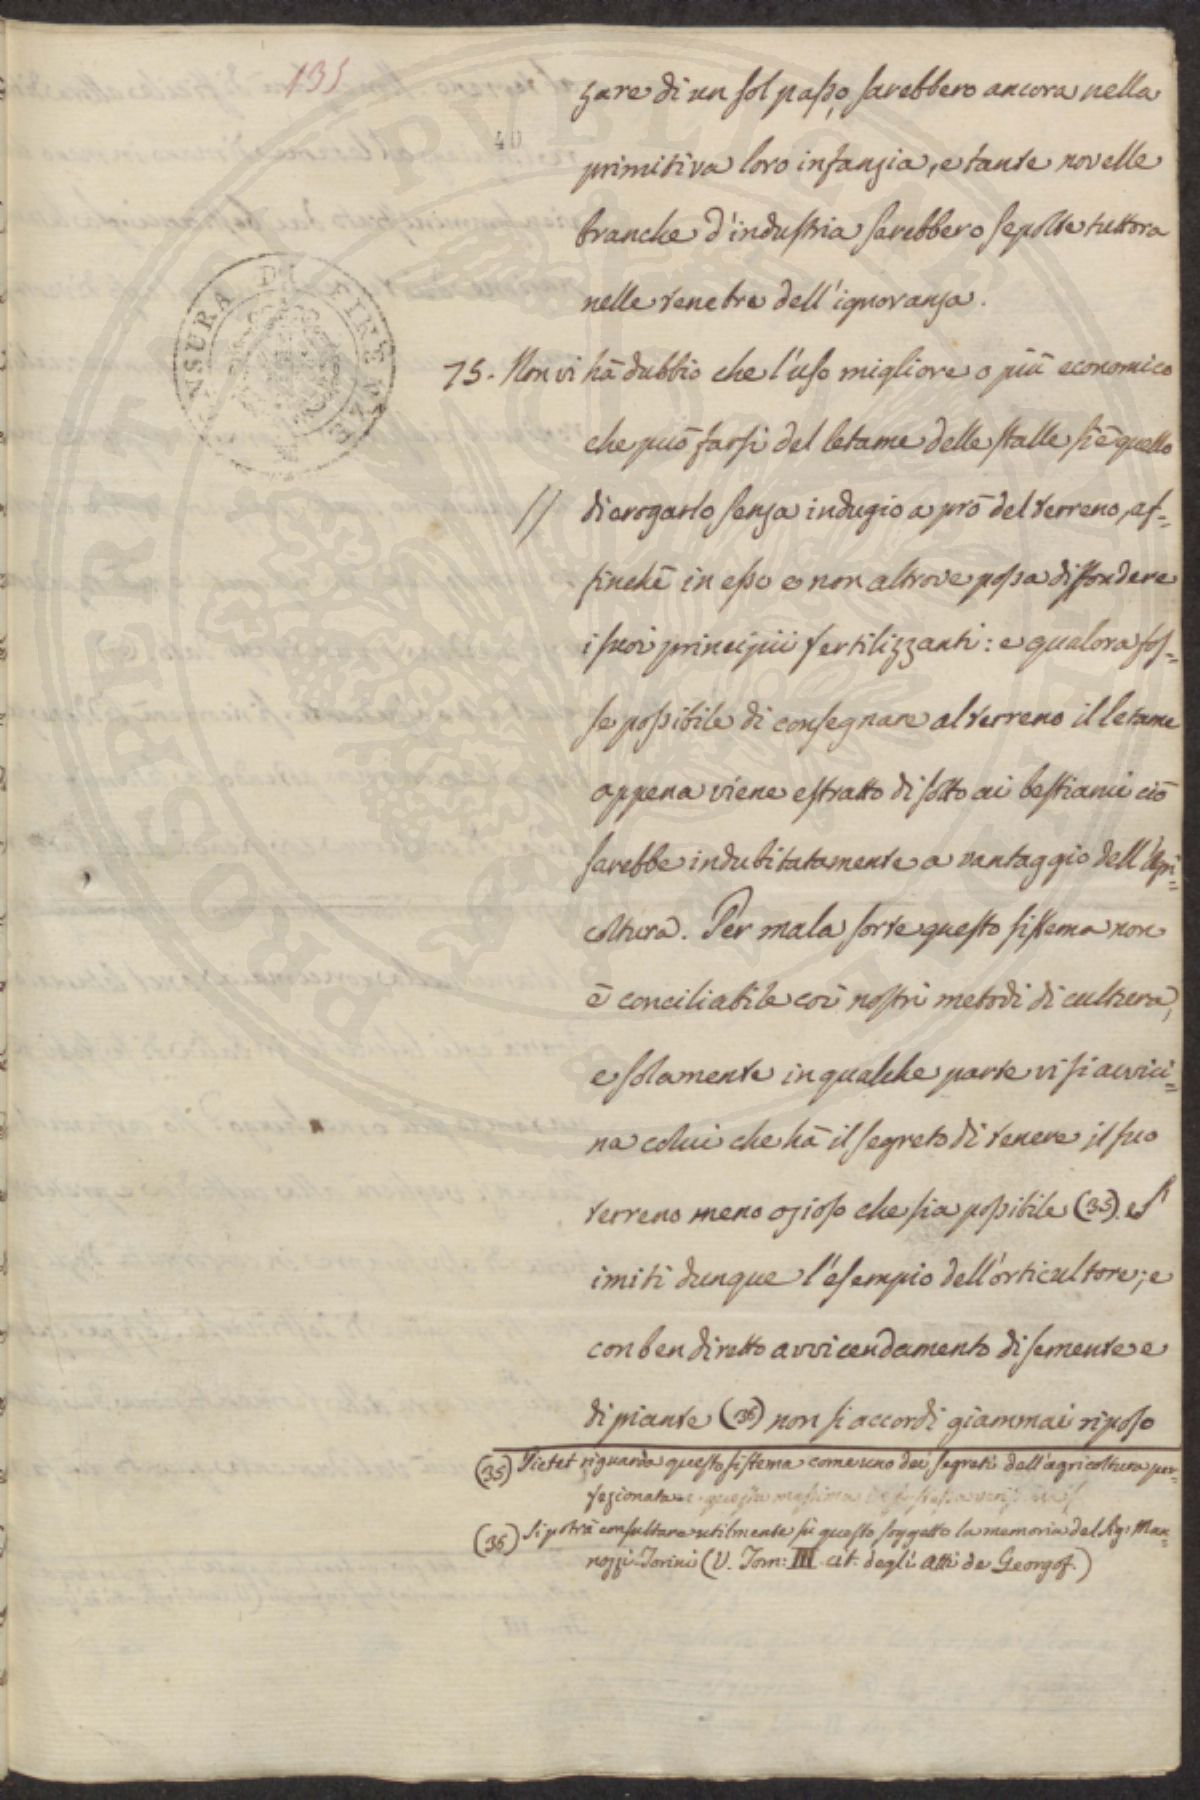 135
40
zare di un sol passo, sarebbero ancora nella
primitiva loro infanzia, e tante novelle
branche d'industria sarebbero sepolte tuttora
nelle tenebre dell'ignoranza.
CENSURA DI FIRENZE
75. Non vi hà dubbio che l'uso migliore o più economico
che può farsi del letame delle stalle si è quello
// di erogarlo senza indugio a prò del terreno, af=
finchè in esso e non altrove possa diffondere
i suoi principii fertilizzanti: e qualora fos=
se possibile di consegnare al terreno il letame
appena viene estratto di sotto ai bestiami ciò
sarebbe indubitatamente a vantaggio dell'Agri=
coltura. Per mala sorte questo sistema non
è conciliabile coi nostri metodi di cultura,
e solamente in qualche parte vi si avvici=
na colui che hà il segreto di tenere il suo
terreno meno ozioso che sia possibile (35). Si
imiti dunque l'esempio dell'orticultore; e
con ben diretto avvicendamento di semente e
di piante (36) non si accordi giammai riposo
(35) Pictet riguarda questo sistema come uno dei segreti dell'agricoltura per=
fezionata e questa massima
(36) Si potrà consultare utilmente sù questo soggetto la memoria del Sig: Man=
nozzi-Torini (V. Tom: III cit. degli Atti de Georgof.)
PROSPERITATI PVBLICAE